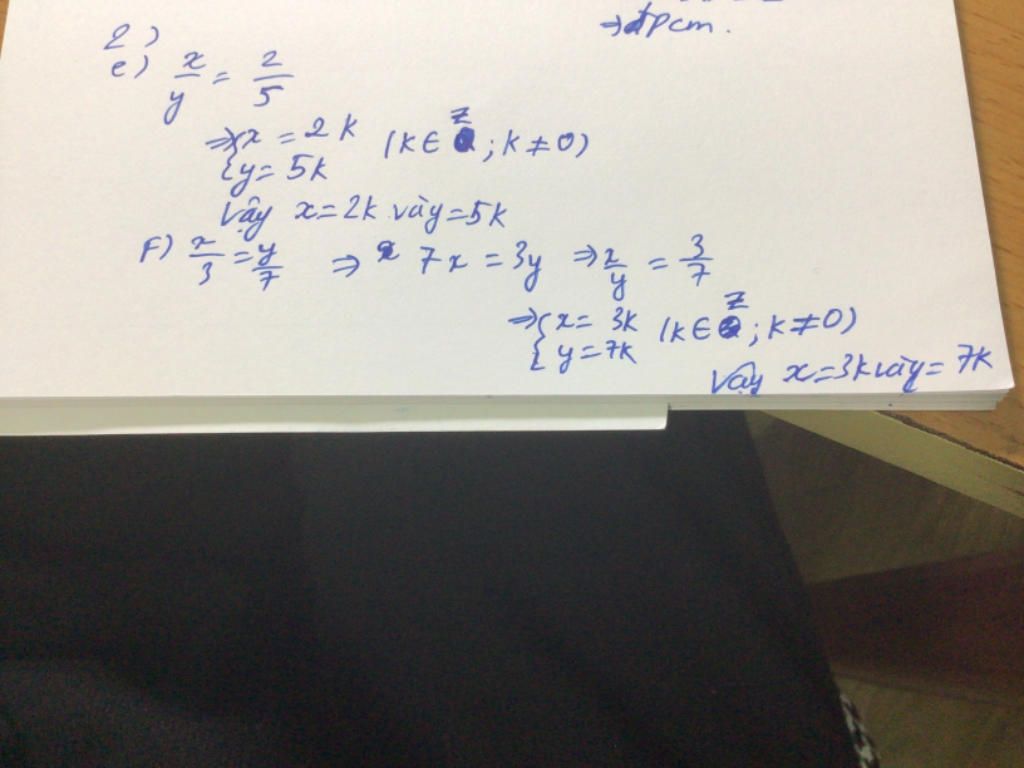 ⇒ đpcm.
2)
e) x/y = 2/5
⇒ { x = 2k (k ∈ Z ; k ≠ 0)
{ y = 5k
Vậy x = 2k và y = 5k
F) x/3 = y/7 ⇒ 7x = 3y ⇒ x/y = 3/7
⇒ { x = 3k (k ∈ Z ; k ≠ 0)
{ y = 7k
Vậy x = 3k và y = 7k